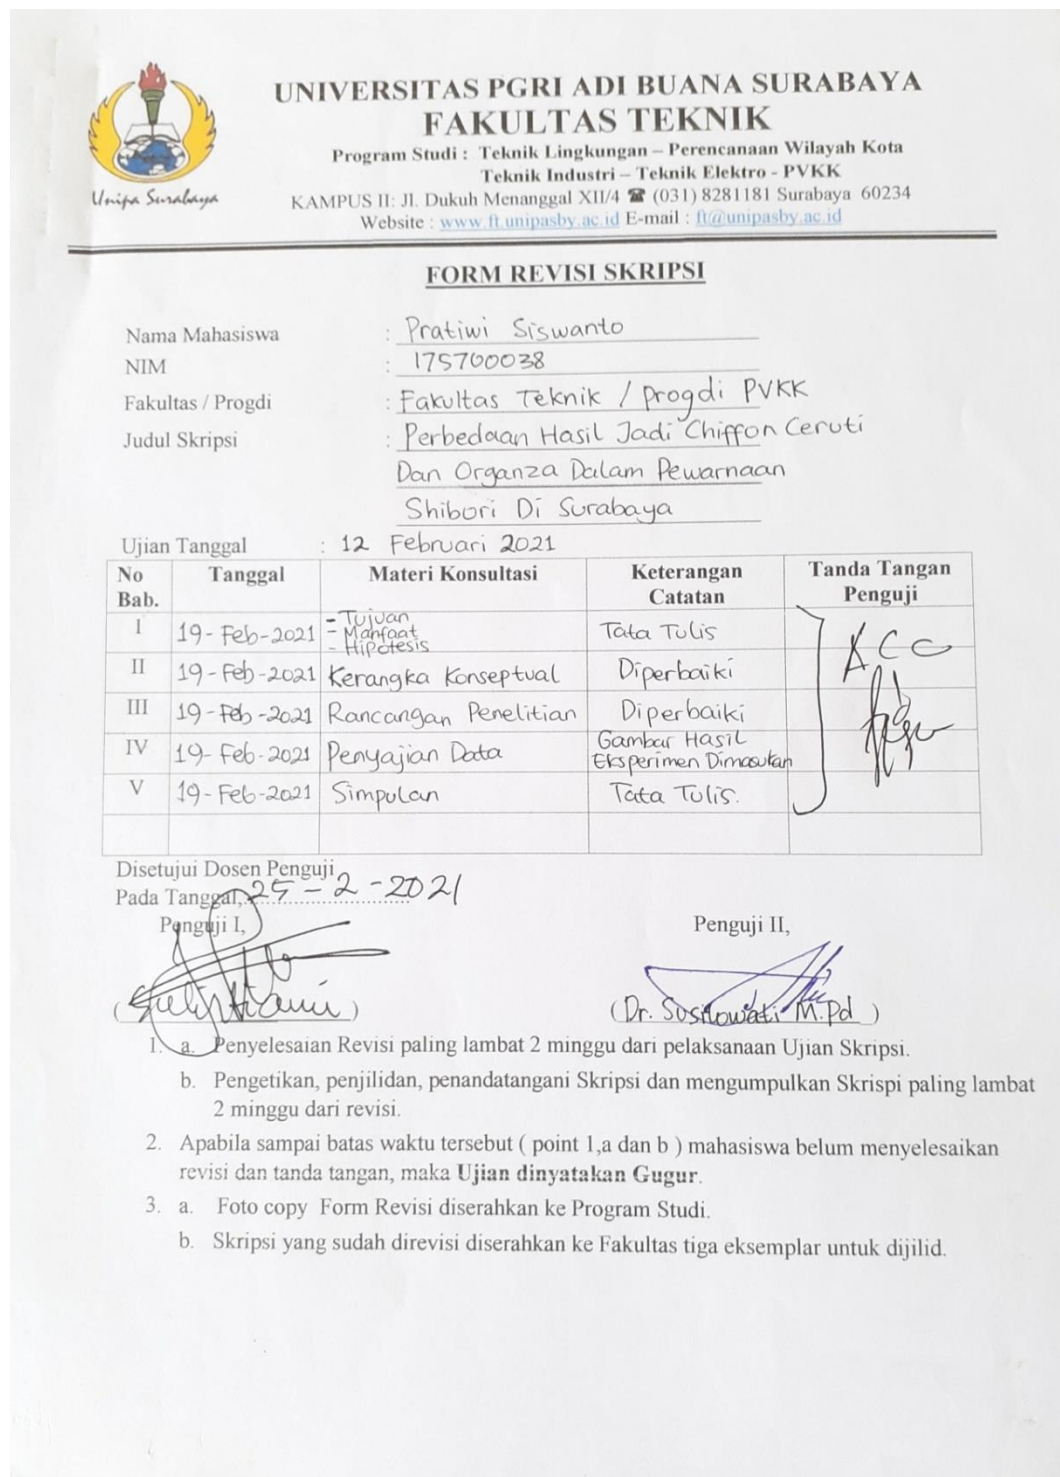 UNIVERSITAS PGRI ADI BUANA SURABAYA
FAKULTAS TEKNIK
Program Studi : Teknik Lingkungan – Perencanaan Wilayah Kota
Teknik Industri – Teknik Elektro - PVKK
KAMPUS II: Jl. Dukuh Menanggal XII/4 ☎ (031) 8281181 Surabaya 60234
Website : www.ft.unipasby.ac.id E-mail : ft@unipasby.ac.id
Unipa Surabaya
FORM REVISI SKRIPSI
Nama Mahasiswa : Pratiwi Siswanto
NIM : 175700038
Fakultas / Progdi : Fakultas Teknik / Progdi PVKK
Judul Skripsi : Perbedaan Hasil Jadi Chiffon Ceruti
Dan Organza Dalam Pewarnaan
Shibori Di Surabaya
Ujian Tanggal : 12 Februari 2021
No Bab. Tanggal Materi Konsultasi Keterangan Catatan Tanda Tangan Penguji
I 19-Feb-2021 - Tujuan - Manfaat - Hipotesis Tata Tulis ACC
II 19-Feb-2021 Kerangka Konseptual Diperbaiki
III 19-Feb-2021 Rancangan Penelitian Diperbaiki
IV 19-Feb-2021 Penyajian Data Gambar Hasil Eksperimen Dimasukan
V 19-Feb-2021 Simpulan Tata Tulis.
Disetujui Dosen Penguji
Pada Tanggal, 25-2-2021
Penguji I, Penguji II,
(Dr. Susilowati M.Pd )
1. a. Penyelesaian Revisi paling lambat 2 minggu dari pelaksanaan Ujian Skripsi.
b. Pengetikan, penjilidan, penandatangani Skripsi dan mengumpulkan Skrispi paling lambat
2 minggu dari revisi.
2. Apabila sampai batas waktu tersebut ( point 1,a dan b ) mahasiswa belum menyelesaikan
revisi dan tanda tangan, maka Ujian dinyatakan Gugur.
3. a. Foto copy Form Revisi diserahkan ke Program Studi.
b. Skripsi yang sudah direvisi diserahkan ke Fakultas tiga eksemplar untuk dijilid.